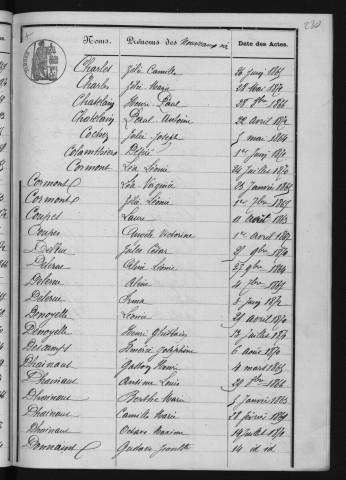 230
Noms. Prénoms des Nouveaux nés Date des Actes.
Charles Zélie Camille 26 juin 1865
Charles Zélie Marie 28 Mai 1870
Chatelain Henri Paul 28 8bre 1866
Chatelain Paul Antoine 22 avril 1870
Cochez Jules Joseph 5 mai 1864
Désiré 1er juin 1870
Cormont Léa Léonie 24 Juillet 1870
Cormont Léa Virginie 03 Janvier 1865
Cormont Zélie Léonie 1er 7bre 1865
Coupez Laure 11 avril 1863
Coupez Victorine 1er avril 1867
Jules César 29 9bre 1870
Delerue Aline Léonie 27 9bre 1864
Delerue Aline 4 7bre 1865
Delerue Irma 5 juin 1872
Denoyelle Léonie 21 avril 1870
Denoyelle Henri Ghislain 13 Juillet 1870
Descamps Joséphine 6 août 1870
Dhainaut Gaston Henri 4 mars 1865
Dhainaut Antime Louis 29 8bre 1866
Dhainaut Berthe Marie 5 Janvier 1865
Dhainaut Camille Marie 28 février 1869
Dhainaut Octave Maxime 19 Juillet 1870
Gustave 14 id id